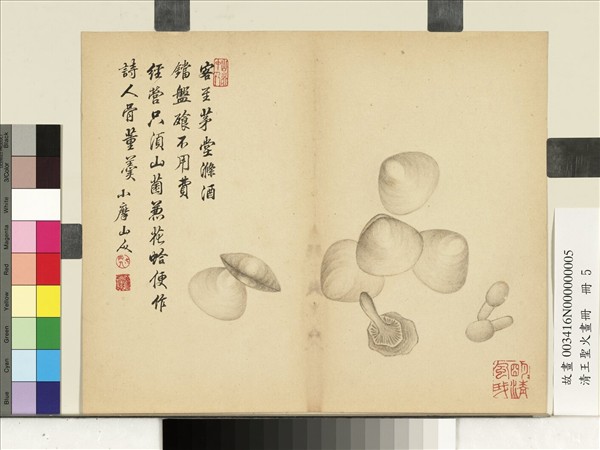 客至茅堂滌酒
鐺盤飱不用費
經營只須山菌兼花蛤便作
詩人骨董羹 小摩山人
故畫 003416N000000005
清王聖火畫冊 冊 5
Black
3/Color
White
Magenta
Red
Yellow
Green
Cyan
Blue